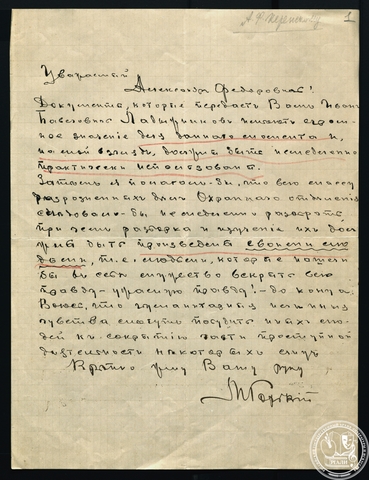 А. Ф. Керенскому
1
Уважаемый
Александр Федорович!
Документы, которые передаст Вам Иван
Павлович Ладыжников имеют огром-
ное значение для данного момента и,
на мой взгляд, должны быть немедленно
практически использованы.
Затем я полагал-бы, что всю массу
разрозненных дел Охранного отделения
следовало-бы немедленно разобрать,
при чем разборка и изучение их дол-
жны быть произведены своими лю-
дьми, т.-е. людьми, которые нашли
бы в себе мужество вскрыть всю
правду – ужасную правду! – до конца.
Боюсь, что
чувства могут побудить иных лю-
дей к сокрытию части преступной
деятельности некоторых лиц.
Крепко жму Вашу руку
М Горький
РГАЛИ